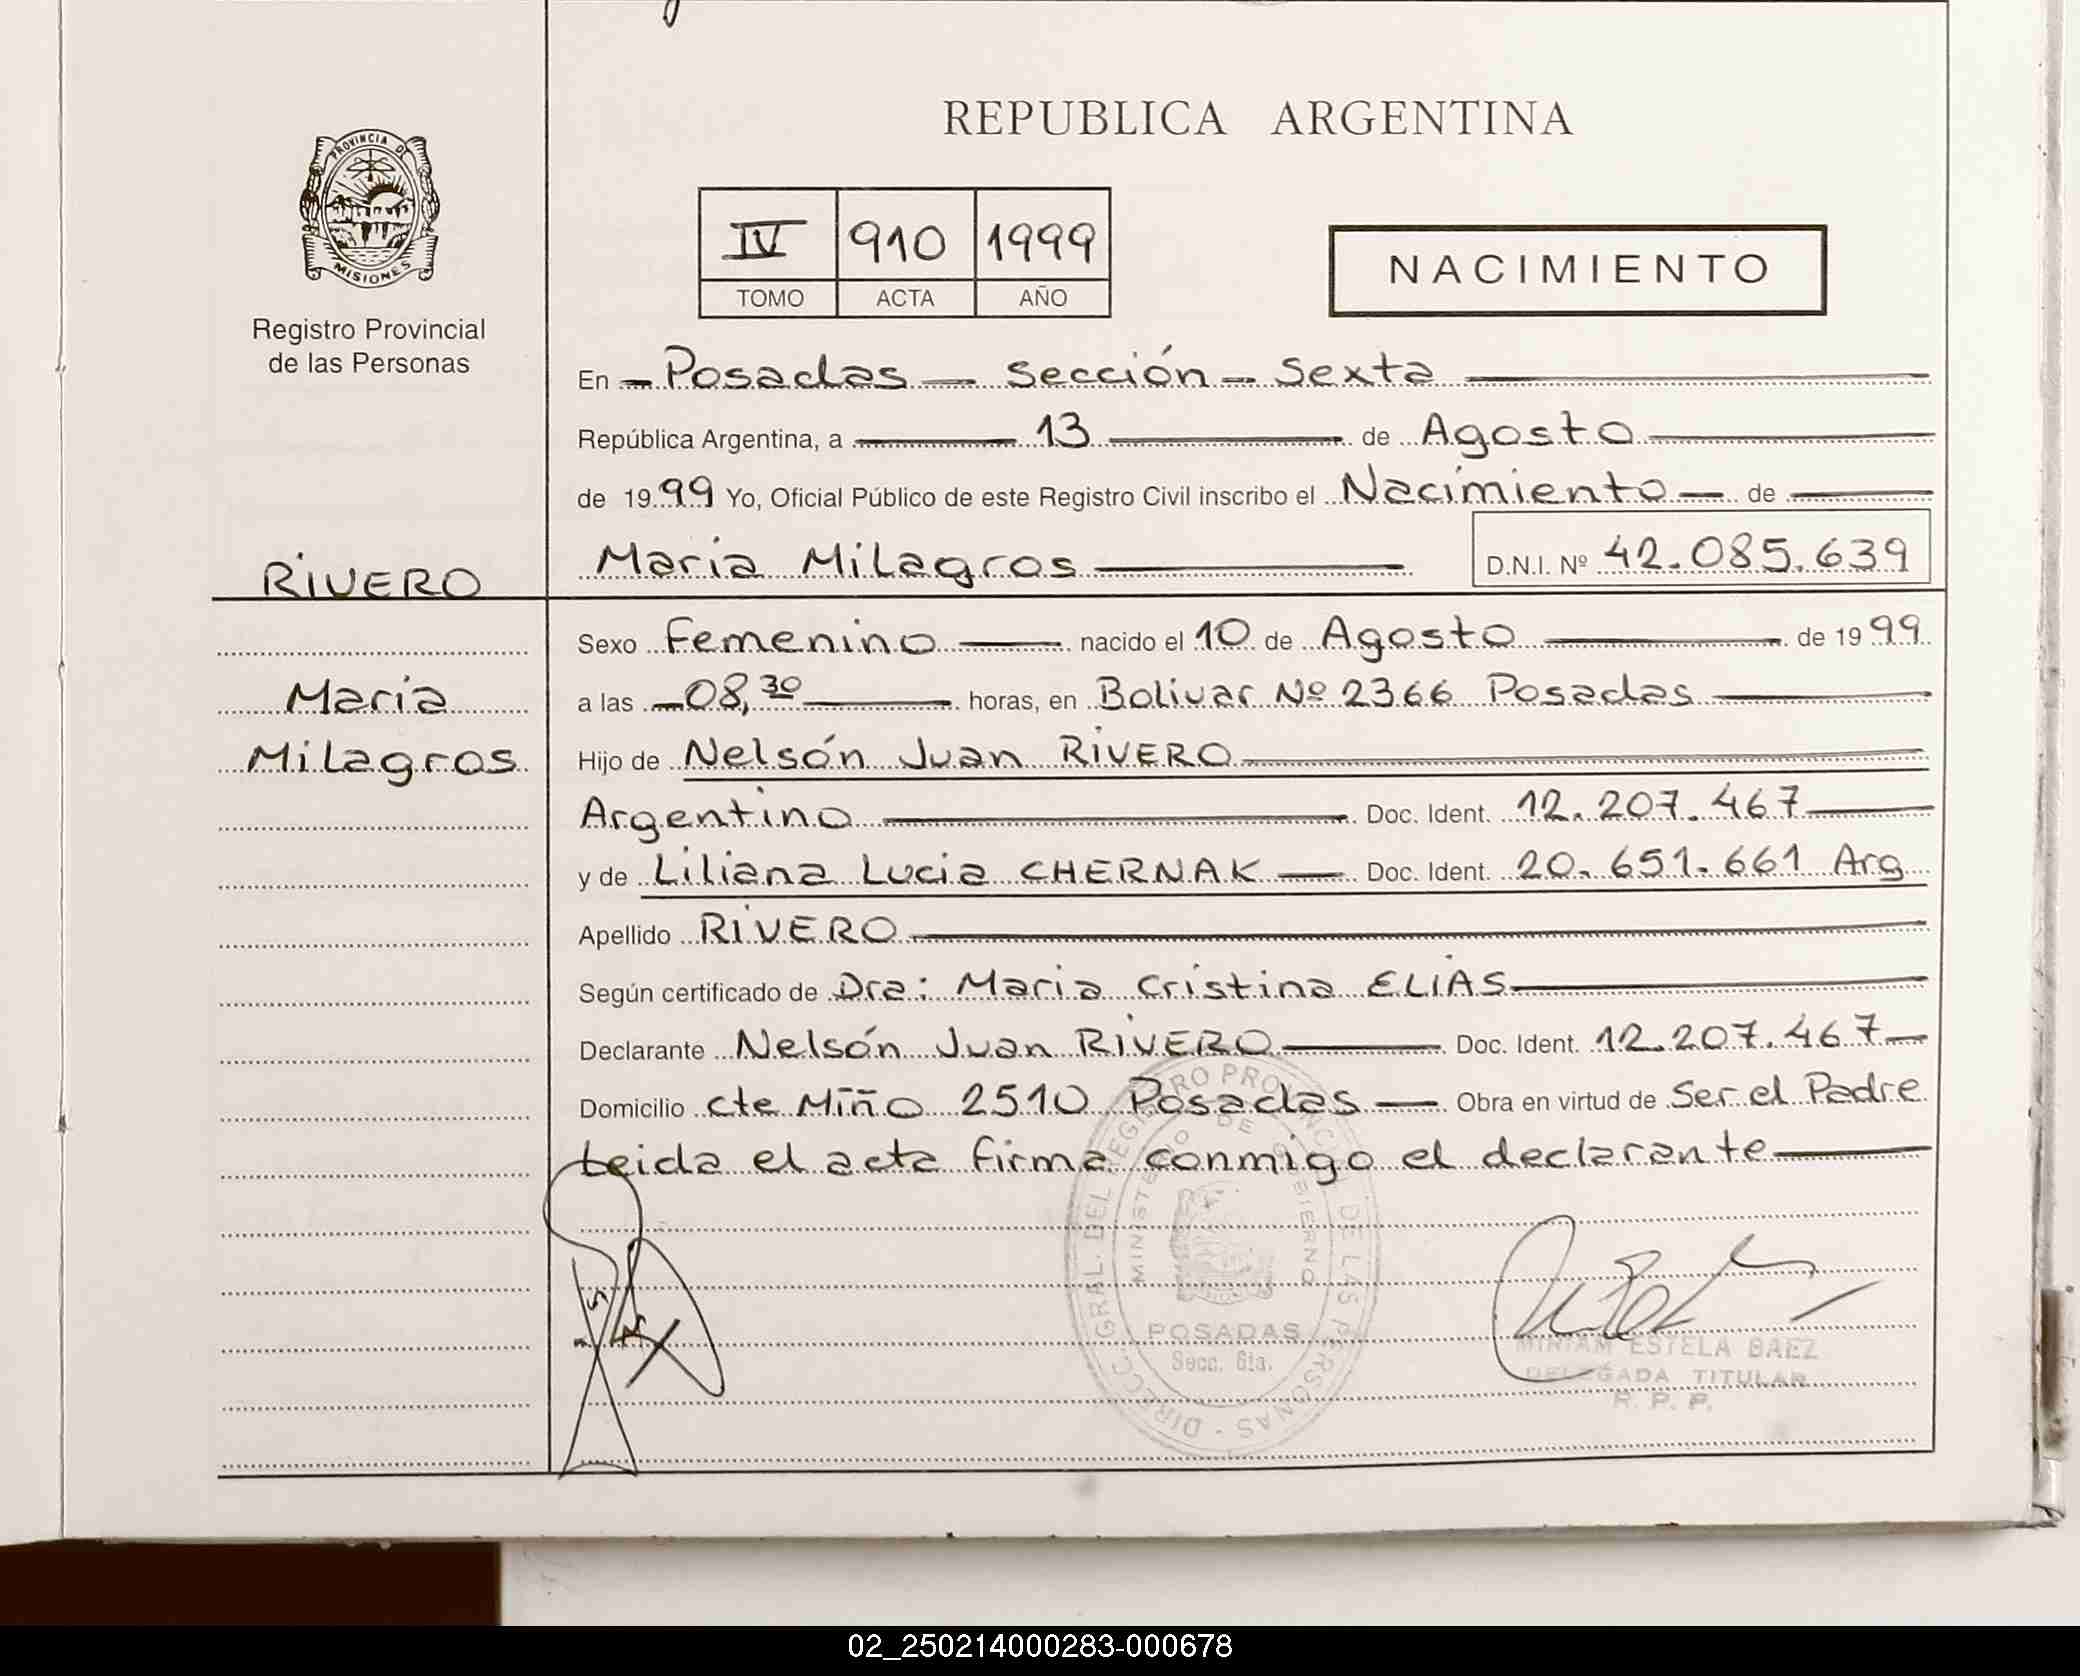 REPUBLICA ARGENTINA
PROVINCIA DE
MISIONES
Registro Provincial
de las Personas
IV 910 1999
TOMO ACTA AÑO
NACIMIENTO
En Posadas - Sección - Sexta
República Argentina, a 13 de Agosto
de 1999 Yo, Oficial Público de este Registro Civil inscribo el Nacimiento de
RIVERO
Maria Milagros D.N.I. Nº 42.085.639
Sexo Femenino nacido el 10 de Agosto de 1999
Maria
a las 08,30 horas, en Bolivar Nº 2366 Posadas
Milagros
Hijo de Nelsón Juan RIVERO
Argentino Doc. Ident. 12.207.467
y de Liliana Lucia CHERNAK Doc. Ident. 20.651.661 Arg
Apellido RIVERO
Según certificado de Dra: Maria Cristina ELIAS
Declarante Nelsón Juan RIVERO Doc. Ident. 12.207.467
Domicilio Cte Miño 2510 Posadas Obra en virtud de Ser el Padre
Leida el acta firma conmigo el declarante
DIRECC. GRAL. DEL REGISTRO PROVINCIAL DE LAS PERSONAS
MINISTERIO DE GOBIERNO
POSADAS
Secc. 6ta.
MIRIAM ESTELA BAEZ
DELEGADA TITULAR
R. P. P.
02_250214000283-000678